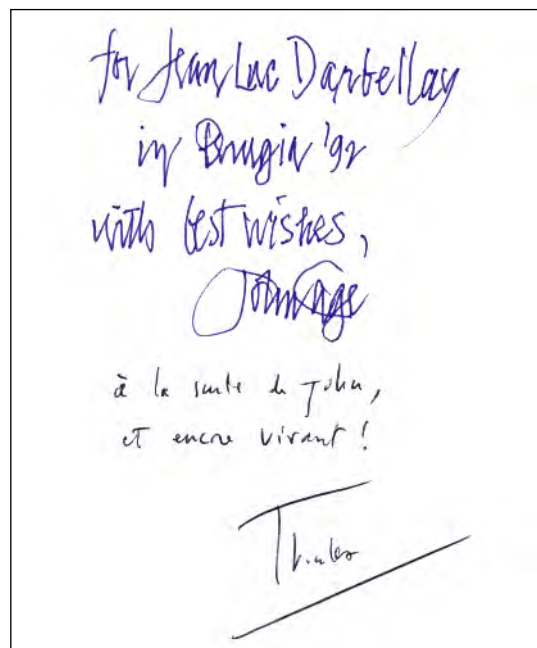 for Jean Luc Darbellay
in Perugia '92
with best wishes,
John Cage
à la suite de John,
et encore vivant !